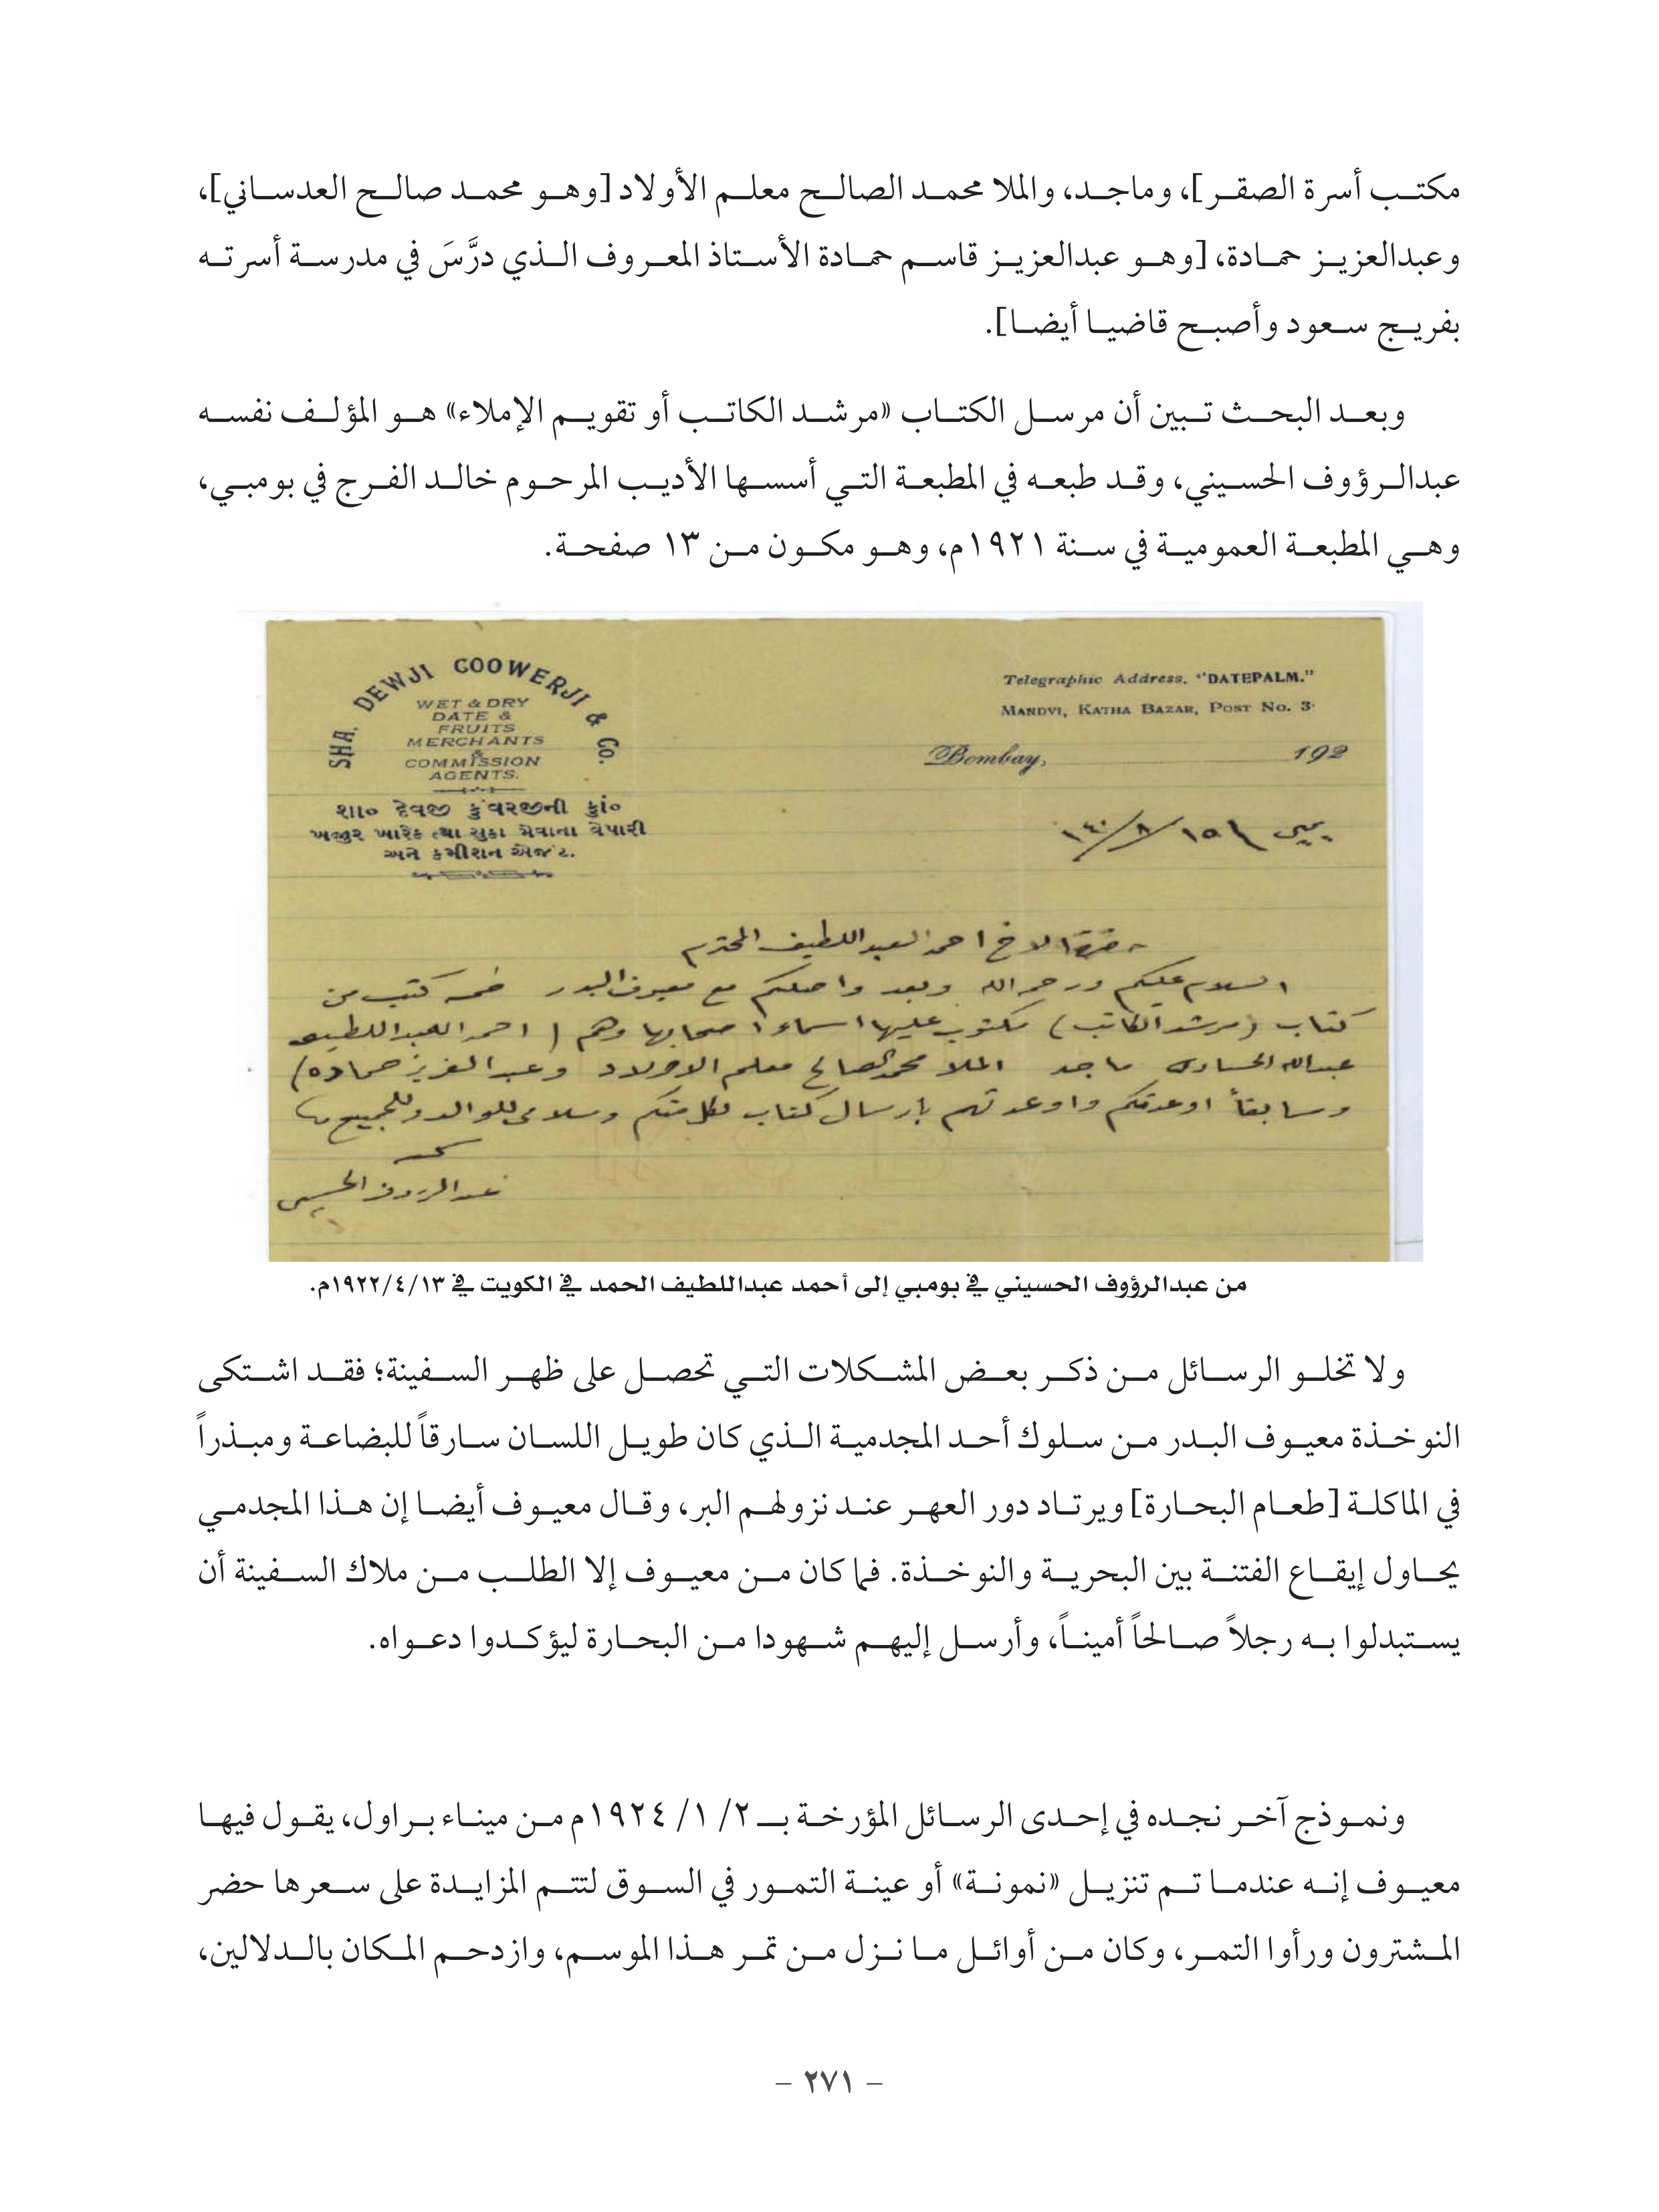 مكتب أسرة الصقر]، وماجد، والملا محمد الصالح معلم الأولاد [وهو محمد صالح العدساني]،
وعبدالعزيز حمادة، [وهو عبدالعزيز قاسم حمادة الأستاذ المعروف الذي درَّسَ في مدرسة أسرته
بفريج سعود وأصبح قاضيا أيضا].
وبعد البحث تبين أن مرسل الكتاب «مرشد الكاتب أو تقويم الإملاء» هو المؤلف نفسه
عبدالرؤوف الحسيني، وقد طبعه في المطبعة التي أسسها الأديب المرحوم خالد الفرج في بومبي،
وهي المطبعة العمومية في سنة ١٩٢١م، وهو مكون من ١٣ صفحة.
SHA. DEWJI COOWERJI & Co.
WET & DRY
DATE &
FRUITS
MERCHANTS
&
COMMISSION
AGENTS.
શા૦ દેવજી કુંવરજીની કું૦
ખજુર ખારેક તથા સુકા મેવાના વેપારી
અને કમીશન એજંટ.
Telegraphic Address. "DATEPALM."
MANDVI, KATHA BAZAR, POST No. 3.
Bombay, 192
حضرة الاخ احمد العبد اللطيف المحترم
السلام عليكم ورحمة الله وبعد واصلكم مع معيوف البدر خمسة كتب من
كتاب (مرشد الكاتب) مكتوب عليها اسماء اصحابها وهم (احمد العبد اللطيف
عبدالله الحساوي ماجد الملا محمد الصالح معلم الاولاد وعبد العزيز حماده)
وسابقاً اوعدتكم واوعدتهم بارسال كتاب لكل منكم وسلامي للوالد وللجميع
عبد الرؤوف الحسيني
من عبدالرؤوف الحسيني في بومبي إلى أحمد عبداللطيف الحمد في الكويت في ١٩٢٢/٤/١٣م.
ولا تخلو الرسائل من ذكر بعض المشكلات التي تحصل على ظهر السفينة؛ فقد اشتكى
النوخذة معيوف البدر من سلوك أحد المجدمية الذي كان طويل اللسان سارقاً للبضاعة ومبذراً
في الماكلة [طعام البحارة] ويرتاد دور العهر عند نزولهم البر، وقال معيوف أيضا إن هذا المجدمي
يحاول إيقاع الفتنة بين البحرية والنوخذة. فما كان من معيوف إلا الطلب من ملاك السفينة أن
يستبدلوا به رجلاً صالحاً أميناً، وأرسل إليهم شهودا من البحارة ليؤكدوا دعواه.
ونموذج آخر نجده في إحدى الرسائل المؤرخة بـ ٢/ ١/ ١٩٢٤م من ميناء براول، يقول فيها
معيوف إنه عندما تم تنزيل «نمونة» أو عينة التمور في السوق لتتم المزايدة على سعرها حضر
المشترون ورأوا التمر، وكان من أوائل ما نزل من تمر هذا الموسم، وازدحم المكان بالدلالين،
– ٢٧١ –